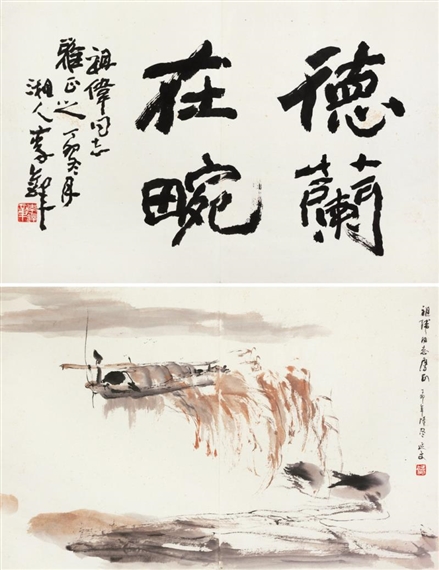 徳蘭
在畹
祖偉同志
雅正之丁卯冬月
湘人李鐸
祖偉同志